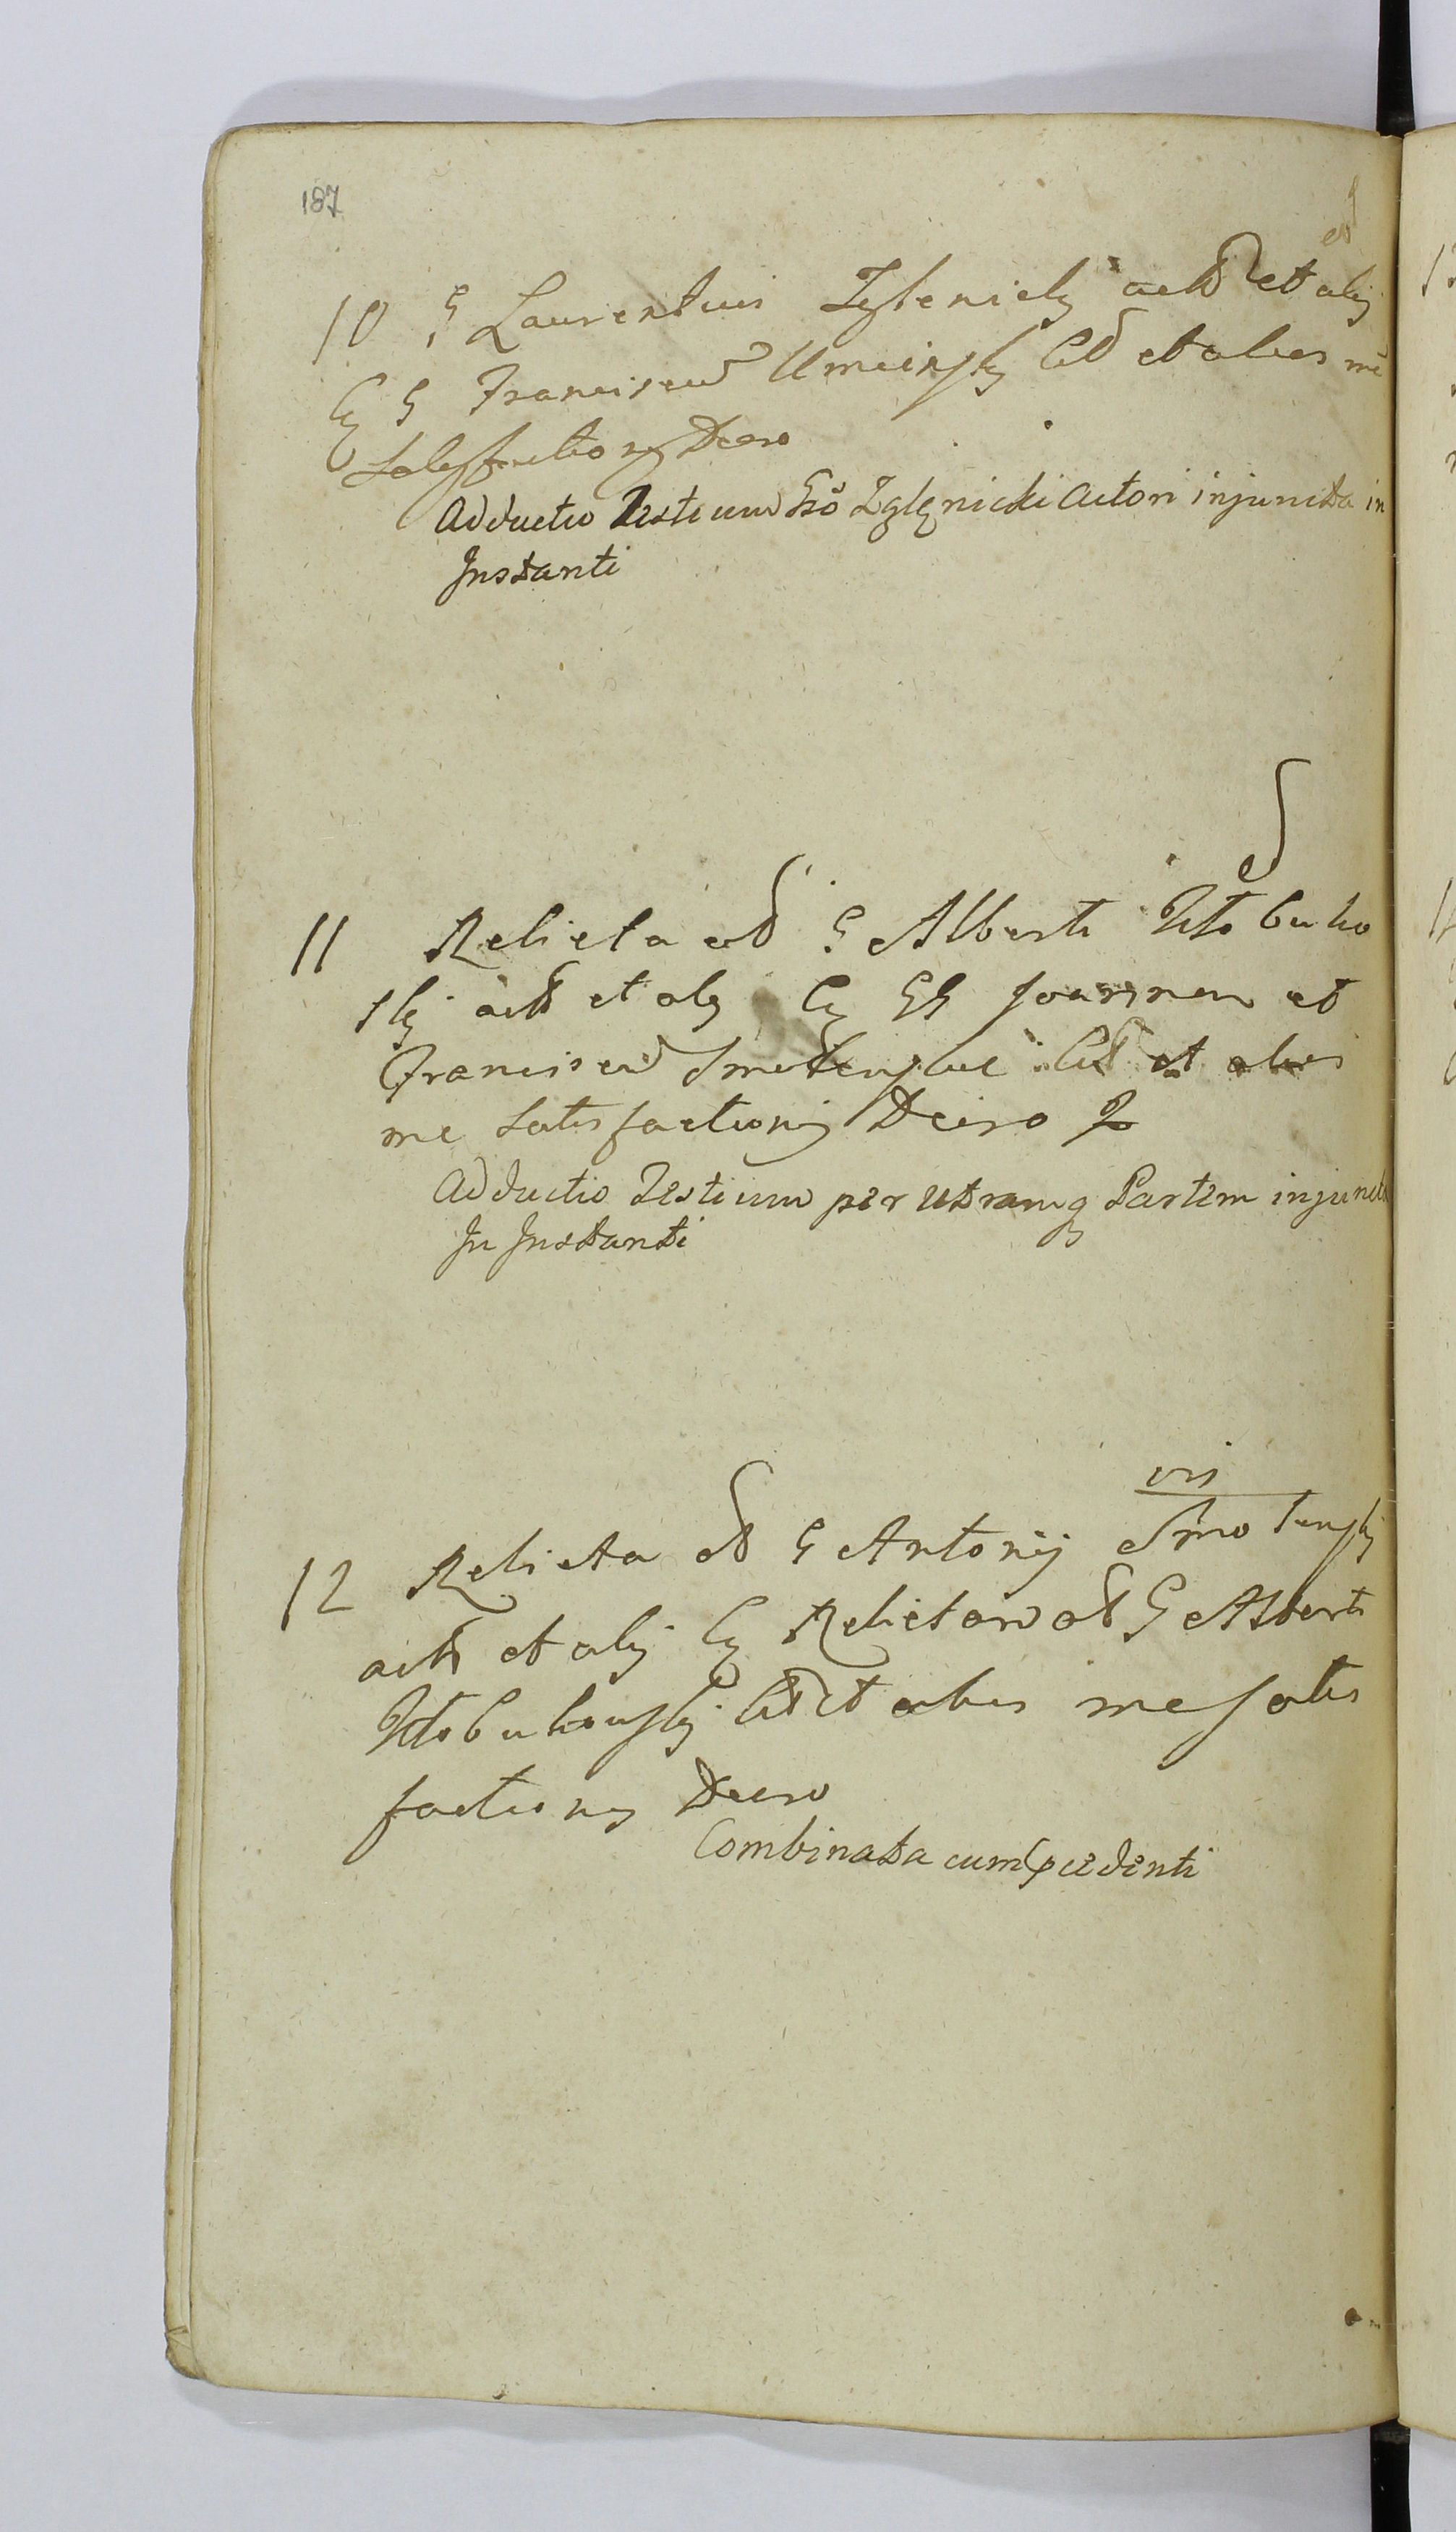 187
et
10 G Laurentius Zglenicky act et alij
C G Franciscum Uminsky Ct et alios me
Satisfactionis Decro
Adductio Testium Gso Zglenicki Actori injuncta in
Instanti
11 Relicta et G Alberti Kłobuko
sky act et alij C GG Joannem et
Franciscum Smolenscie Ct et alios
me satisfactionis Decro
Adductio Testium per utramq Partem injuncta
In Instanti
vis
12 Relicta et G Antonij Smolensky
act et alij C Relictam et G Alberti
Kłobukowsky Ct et alios me satis
factionis Decro
Combinata cum pcedenti